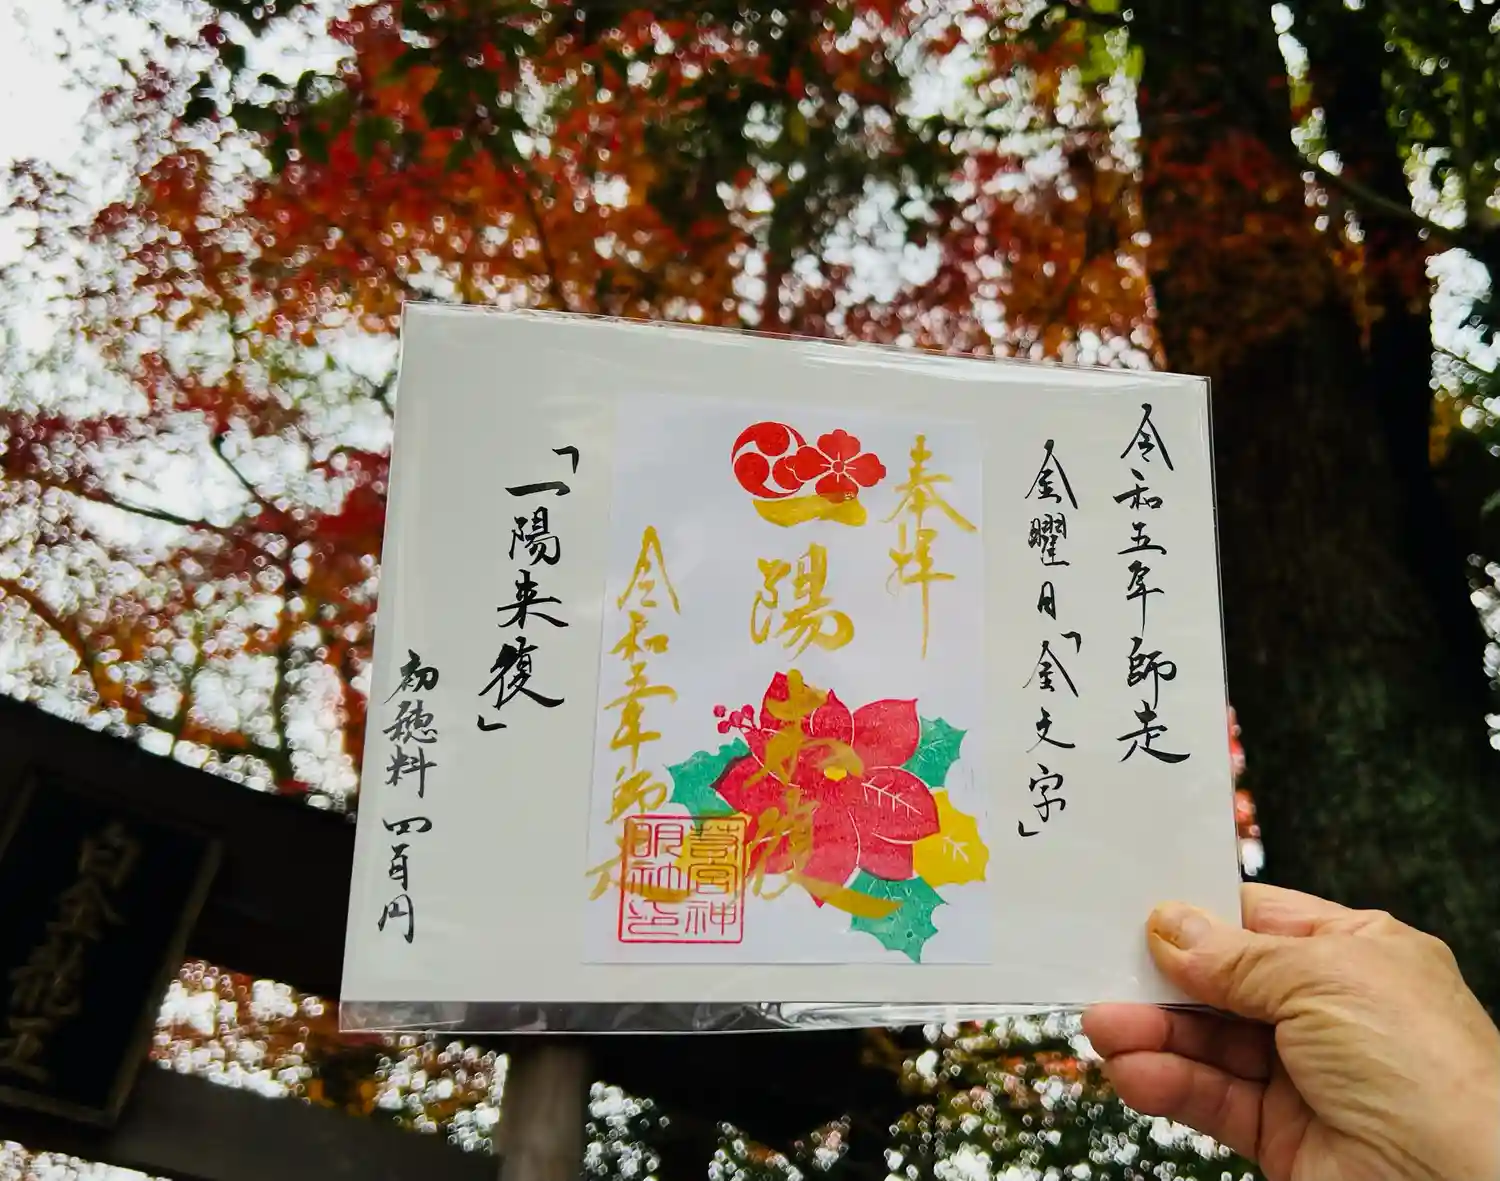 令和五年師走
金曜日「金文字」
奉拝
一陽来復
令和五年師走
「一陽来復」
初穂料 四百円